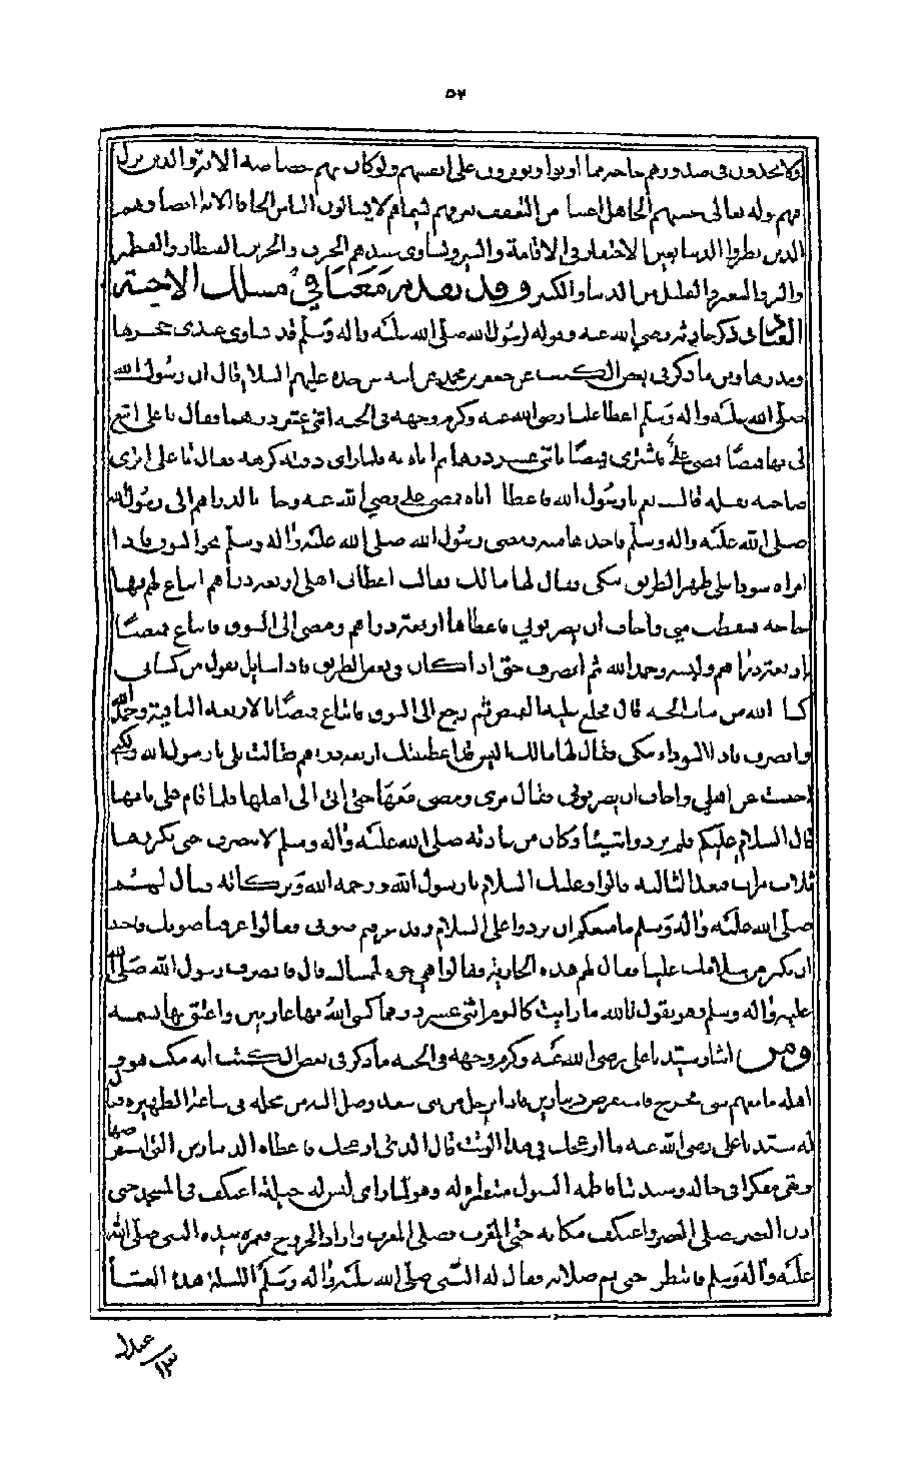 ٥٢
ولا يجدون في صدورهم حاجة مما اوتوا ويوثرون على انفسهم ولو كان بهم خصاصة الاية والذين نزل
فيهم قوله تعالى يحسبهم الجاهل اغنيا من التعفف تعرفهم بسيماهم لا يسالون الناس الحافا الاية ايضا وهم
الذين نظروا الدنيا بعين الاحتقار في الاقامة والسير وتساوى عندهم الحرب والحرير القنطار والقطمير
والبر والشعير والقليل من الدنيا والكثير وقد تقدم معنا في مسلك الاحبة
في ذكر حارثة رضي الله عنه وقوله لرسول الله صلى الله عليه واله وسلم قد تساوى عندي حجرها
ومدرها ومن ما ذكر في بعض الكتب عن جعفر بن محمد عن ابيه عن جده عليهم السلام قال ان رسول الله
صلى الله عليه واله وسلم اعطا عليا رضي الله عنه وكرم وجهه في الجنة اثني عشر درهما وقال يا علي ابتع
لي بها قميصا فمضى علي فاشترى قميصا باثني عشر درهما ثم اتاه به فلما راى دقته كرهه فقال يا علي اترى
صاحبه يقيله قال نعم يا رسول الله فاعطا اياه فمضى علي رضي الله عنه وجا بالدراهم الى رسول الله
صلى الله عليه واله وسلم فاخذها منه ومضى رسول الله صلى الله عليه واله وسلم نحو السوق فاذا
امراة سودا على ظهر الطريق تبكي فقال لها مالك فقالت اعطاني اهلي اربعة دراهم ابتاع لهم بها
حاجة فسقطت مني واخاف ان يضربوني فاعطاها اربعة دراهم ومضى الى السوق فابتاع قميصا
باربعة دراهم ولبسه وحمد الله ثم انصرف حتى اذا كان في بعض الطريق فاذا سايل يقول من كساني
كسا الله من ثياب الجنة قال فخلع عليه القميص ثم رجع الى السوق فابتاع قميصا بالاربعة الباقية وحمد الله
وانصرف فاذا السوداء تبكي فقال لها مالك اليس قد اعطيتك اربعة دراهم فقالت بلى يا رسول الله ولكني
احتبست عن اهلي واخاف ان يضربوني فقال مري ومضى معها حتى اتى الى اهلها فلما قام على بابها
قال السلام عليكم فلم يردوا شيئا وكان من عادته صلى الله عليه واله وسلم لا ينصرف حتى يكررها
ثلاث مرات فعند الثالثة قالوا وعليك السلام يا رسول الله ورحمة الله وبركاته فقال لهم
صلى الله عليه واله وسلم ما منعكم ان تردوا علي السلام وقد عرفتم صوتي فقالوا عرفنا صوتك فاحببنا
ان تكثر من سلامك علينا فقال لهم هذه الجارية فقالوا هي حرة لمسالك قال فانصرف رسول الله صلى الله
عليه واله وسلم وهو يقول تالله ما رايت كاليوم اثني عشر درهما كسى الله بها عاريين واعتق بها نسمة
ومن ايثار سيدنا علي رضي الله عنه وكرم وجهه في الجنة ما ذكر في بعض الكتب انه مكث هو و
اهله ما معهم شي فخرج فاستقرض دينارين فاذا برجل من بني سعد وصل الى من محله في ساعة الظهيرة فقال
له سيدنا علي رضي الله عنه ما ازعجك في هذا الوقت قال الذي ازعجك فاعطاه الدينارين التي استقرضها
وبقي مفكرا في حاله وسيدتنا فاطمة البتول منتظرة له وهو لما راى ليس له حيلة اعتكف في المسجد حتى
اذن العصر صلى العصر واعتكف مكانه حتى المغرب فصلى المغرب واراد الخروج فغمزه بيده النبي صلى الله
عليه واله وسلم فانتظر حتى تم صلاته فقال له النبي صلى الله عليه واله وسلم الليلة هذه العشا